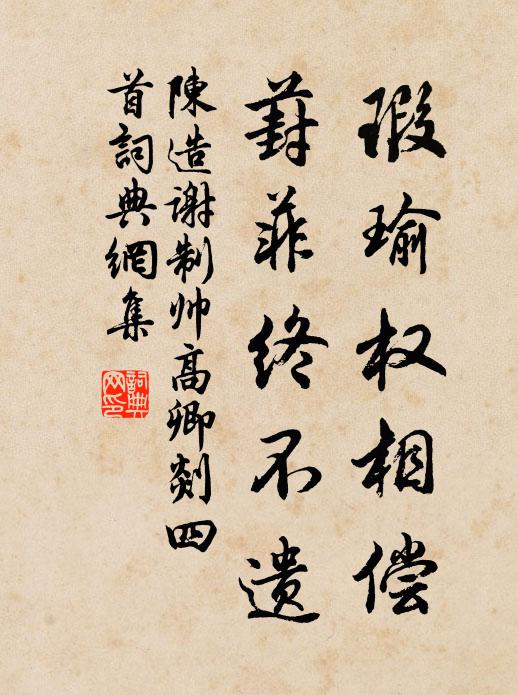 瑕瑜权相偿
葑菲终不遗
陳造谢制帅高卿剡四
首詞典網集
詞典網印